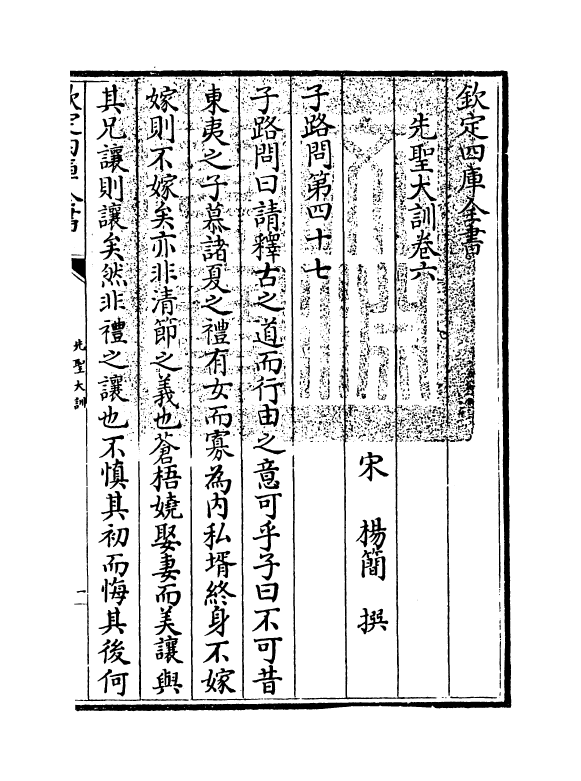 欽定四庫全書
先聖大訓卷六
宋 楊簡 撰
子路問第四十七
子路問曰請釋古之道而行由之意可乎子曰不可昔
東夷之子慕諸夏之禮有女而寡為内私壻終身不嫁
嫁則不嫁矣亦非清節之義也蒼梧嬈娶妻而美讓與
其兄讓則讓矣然非禮之讓也不慎其初而悔其後何
欽定四庫全書
先聖大訓
一